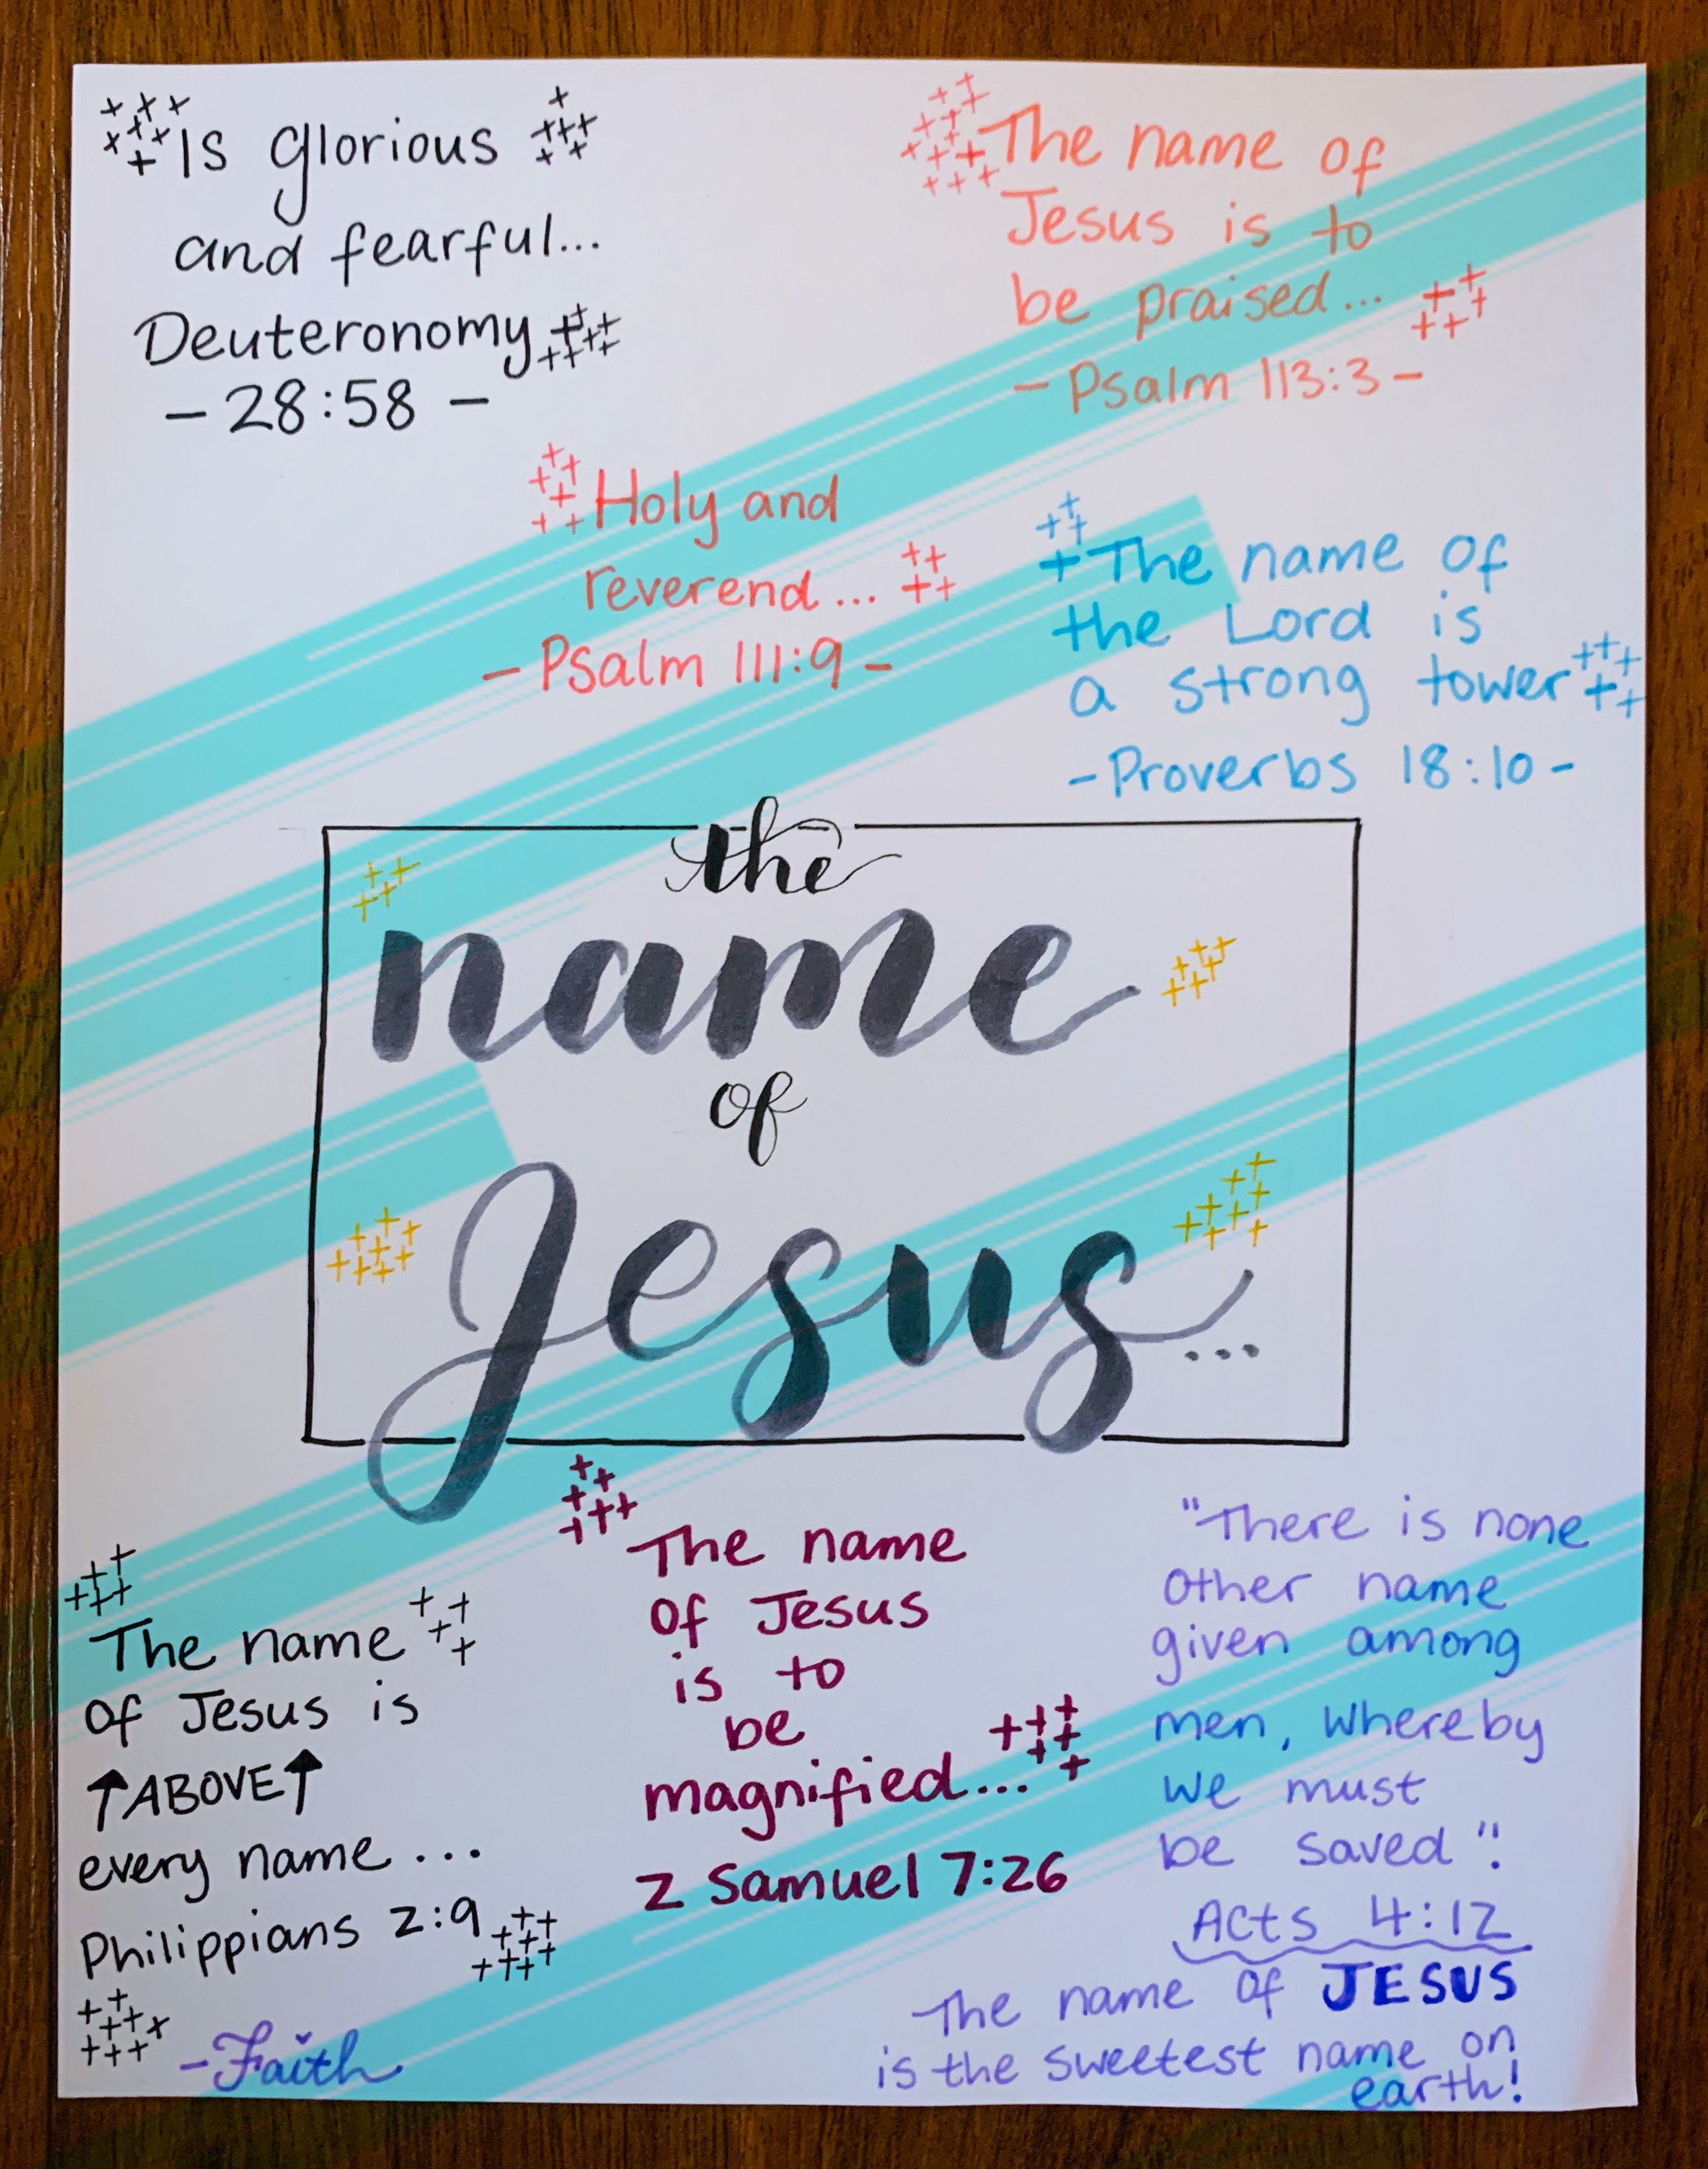 Is glorious
and fearful...
Deuteronomy
- 28:58 -
The name of
Jesus is to
be praised...
- Psalm 113:3 -
Holy and
reverend...
- Psalm 111:9 -
The name of
the Lord is
a strong tower
- Proverbs 18:10 -
the
name
of
Jesus...
The name
of Jesus is
↑ABOVE↑
every name...
Philippians 2:9
- Faith
The name
of Jesus
is to
be
magnified...
2 Samuel 7:26
"There is none
other name
given among
men, whereby
we must
be saved".
Acts 4:12
The name of JESUS
is the sweetest name on
earth!